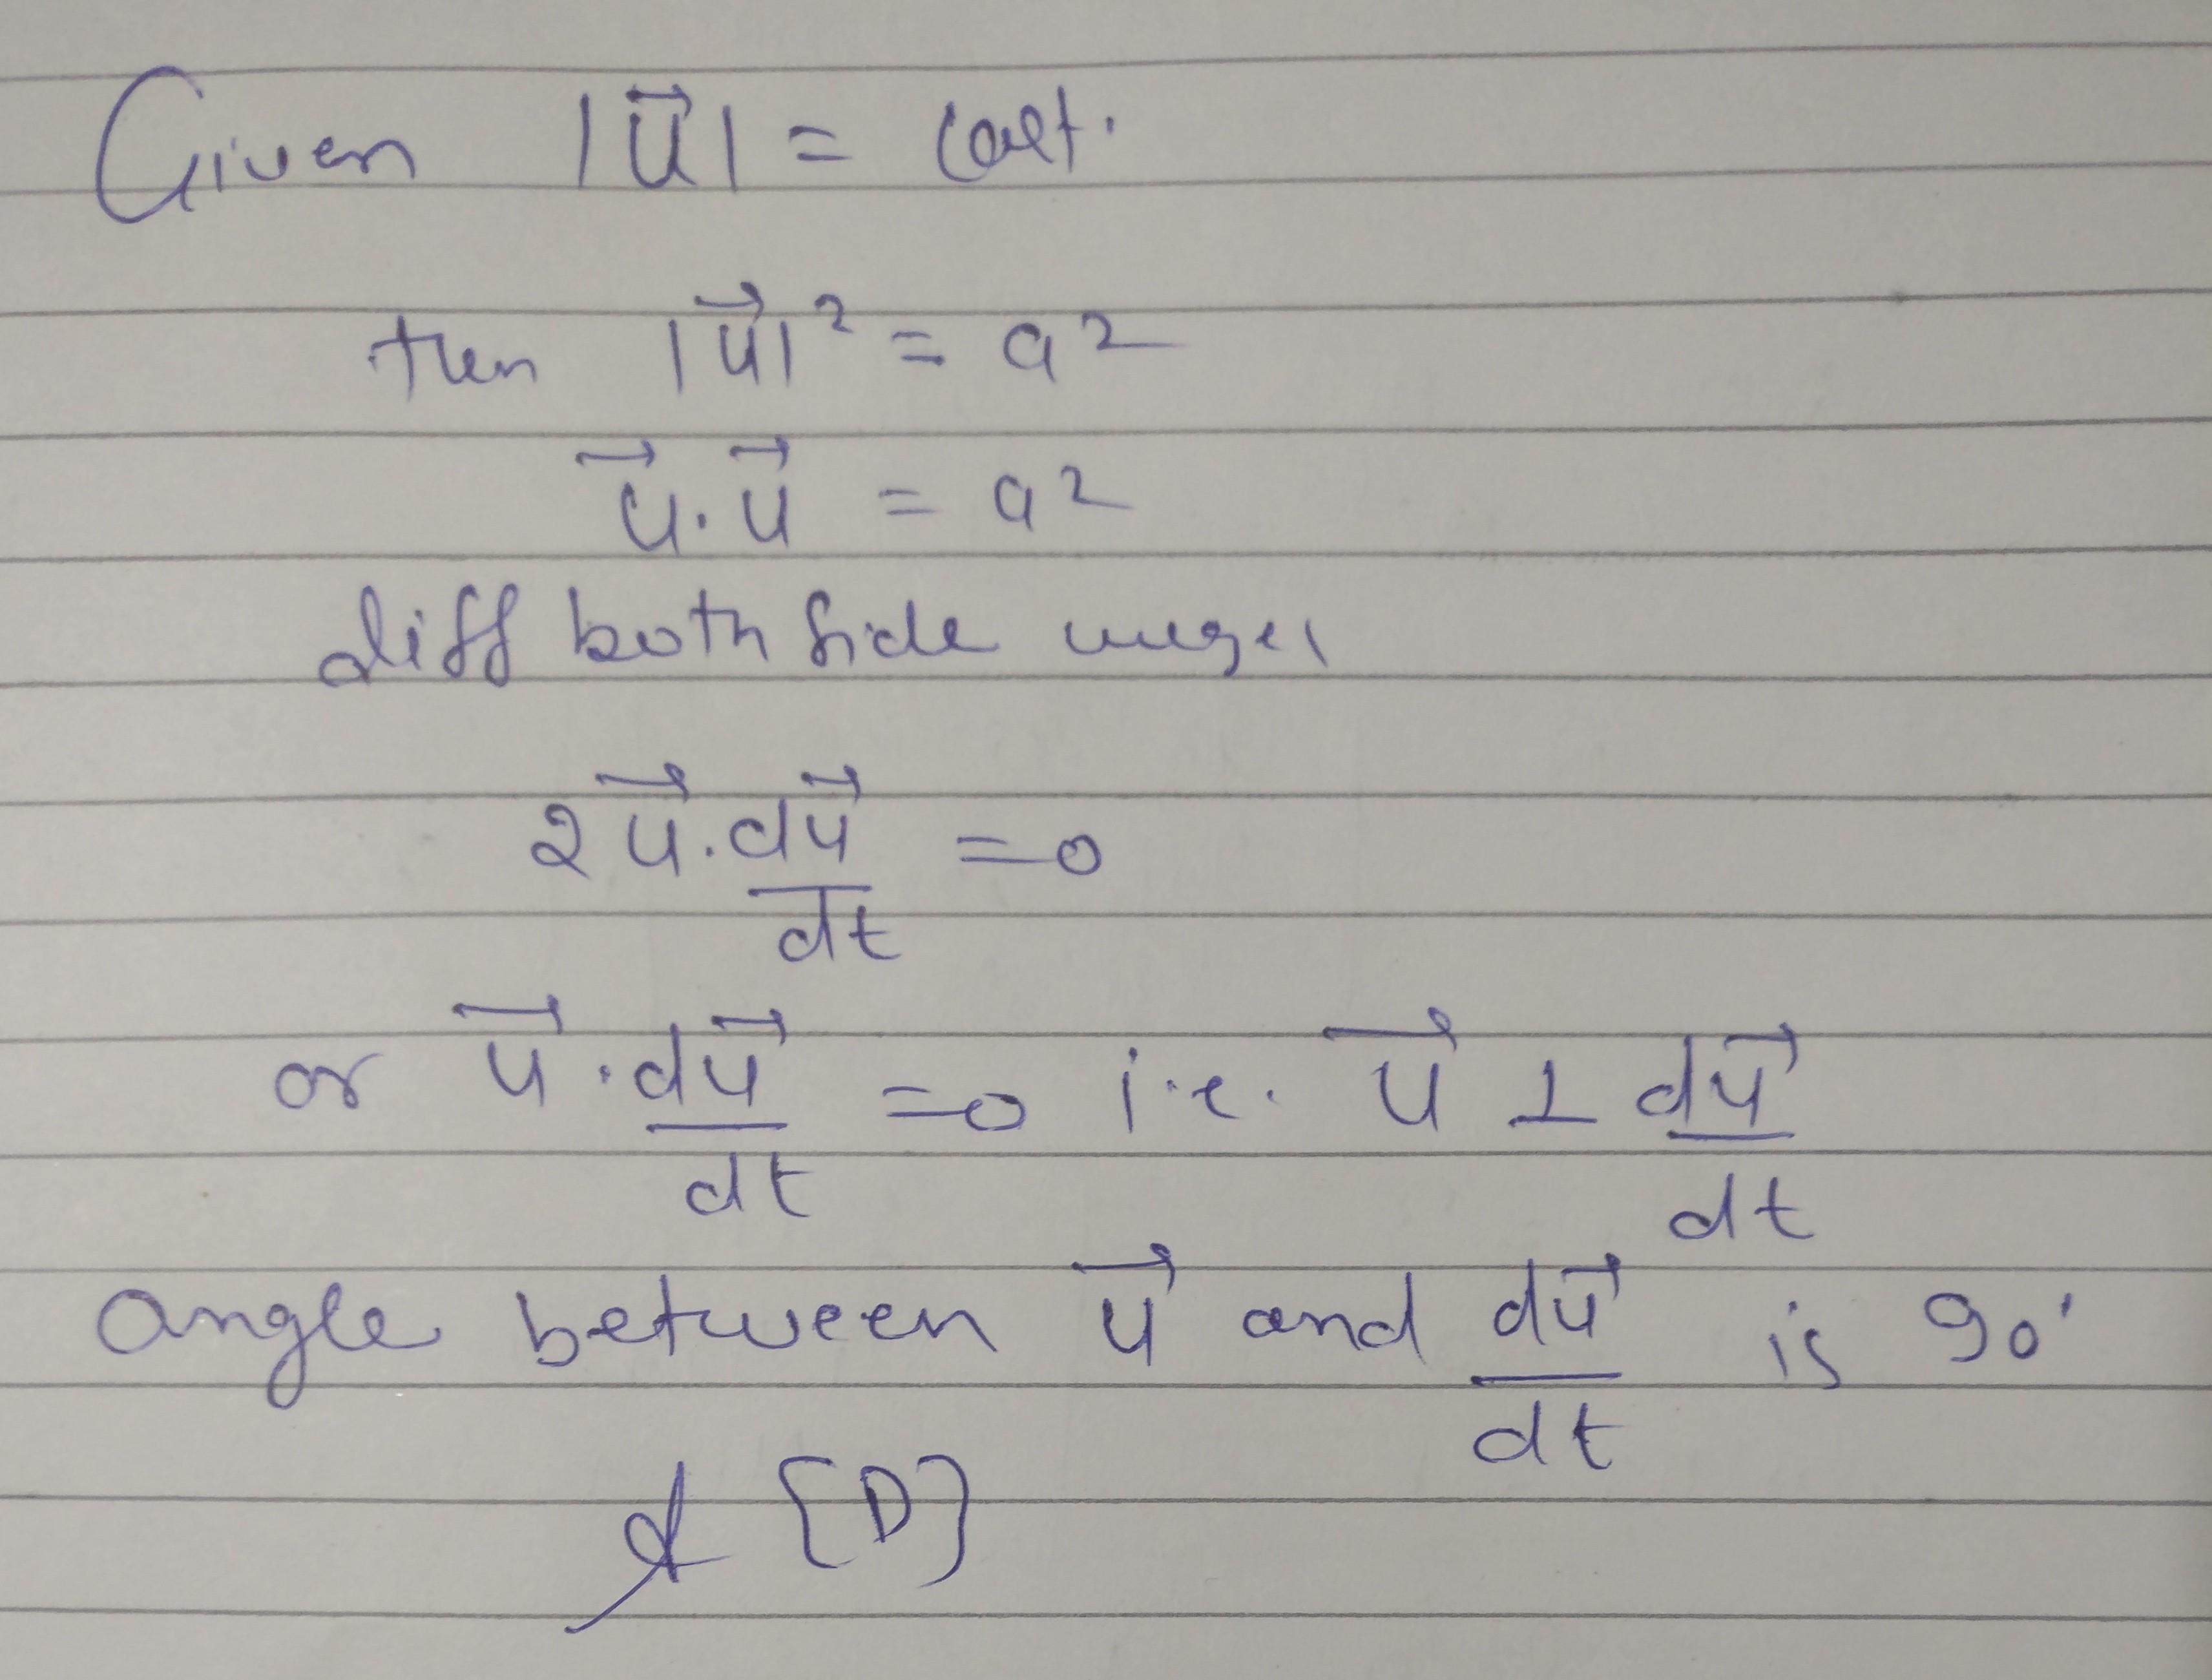 Given |u⃗| = cost.
then |u⃗|² = a²
u⃗.u⃗ = a²
diff both side
2u⃗.du⃗/dt =0
or u⃗.du⃗/dt =0 i.e. u⃗ ⊥ du⃗/dt
angle between u⃗ and du⃗/dt is 90°
{D}